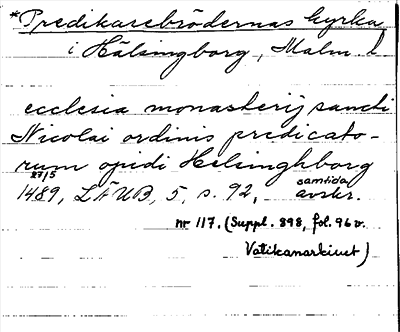 *Predikarebrödernas kyrka
i Hälsingborg, Malm. l.
ecclesia monasterij sancti
Nicolai ordinis predicato-
rum opidi Helsinghborg
27/5 samtida
1489, LÄUB, 5, s. 92, avskr.
nr 117. (Suppl. 898, fol. 96 v.
Vatikanarkivet)